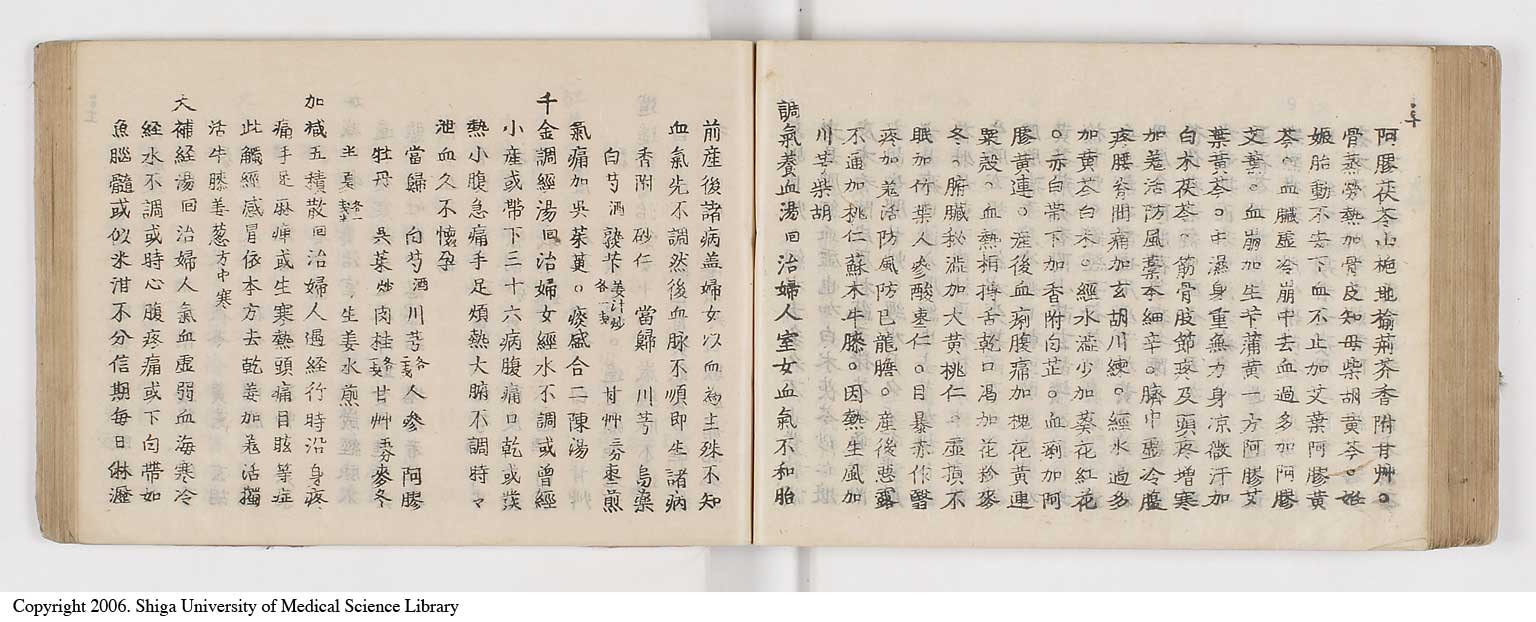 阿膠茯苓山梔地榆荊芥香附甘艸。
骨蒸勞熱加骨皮知母柴胡黃芩。妊
娠胎動不安下血不止加艾葉阿膠黃
芩。血臟虛冷崩中去血過多加阿膠
艾葉。血崩加生芐蒲黃一方阿膠艾
葉黃芩。中濕身重無力身凉微汗加
白朮茯苓。筋骨肢節疼及頭疼增寒
加羗活防風藁本細辛。臍中虛冷腹
疼腰脊間痛加玄胡川練。經水過多
加黃芩白朮。經水澁少加葵花紅花
。赤白帶下加香附白芷。血痢加阿
膠黃連。產後血痢腹痛加槐花黃連
粟殼。血熱相搏舌乾口渴加花粉麥
冬。腑臟秘澁加大黃桃仁。虛煩不
眠加竹葉人參酸棗仁。目暴赤作翳
疼加羗活防風防已龍膽。產後惡露
不通加桃仁蘇木牛膝。因熱生風加
川芎柴胡
調氣養血湯回治婦人室女血氣不和胎
前産後諸病盖婦女以血為主殊不知
血氣先不調然後血脉不順即生諸病
香附砂仁 當歸 川芎 烏藥
白芍酒 熟芐姜汁炒各一戔 甘艸夛棗煎
氣痛加吳茱萸。痰盛合二陳湯
千金調經湯回治婦女經水不調或曾經
小産或帶下三十六病腹痛口乾或發
熱小腹急痛手足煩熱大腑不調時々
泄血久不懷孕
當歸 白芍酒 川芎 人參 阿膠
牡丹 吳茱炒 肉桂 甘艸 夛麥冬
半夏 生姜水煎
加减五積散回治婦人遇經行時沿身疼
痛手足麻痺或生寒熱頭痛目眩等症
此觸經感冒依本方去乾姜加羗活獨
活牛膝姜葱方中寒
大補経湯回治婦人氣血虛弱血海寒冷
経水不調或時心腹疼痛或下白帶如
魚腦髓或似米泔不分信期每日淋瀝
Copyright 2006. Shiga University of Medical Science Library